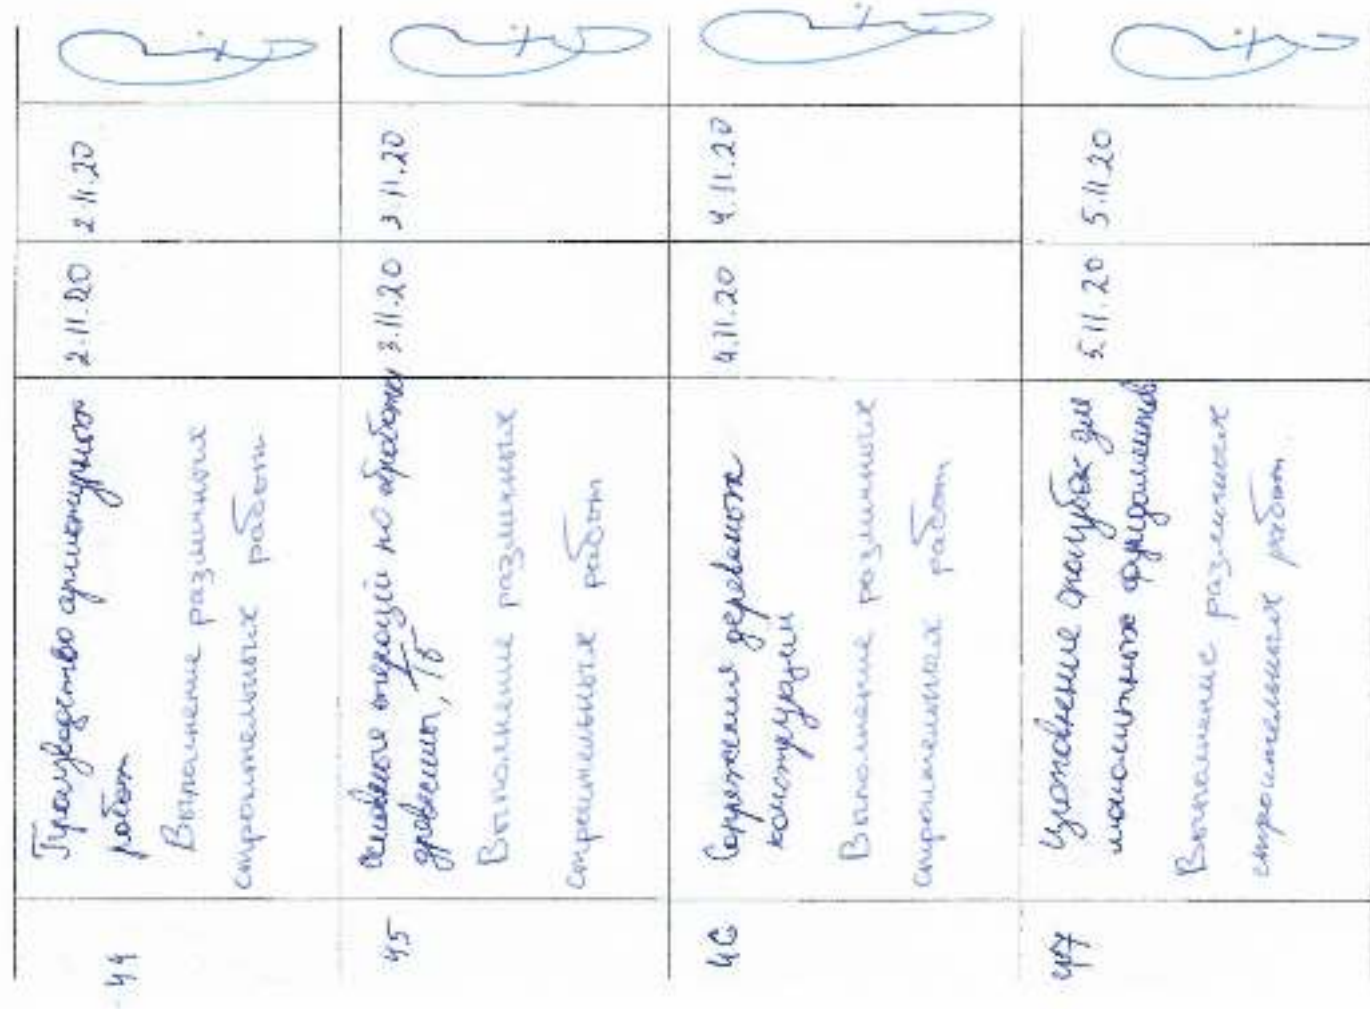 44
Производство арматурных
работ
Выполнение различных
строительных работ
2.11.20
2.11.20
45
Основные операции по обработке
древесины, ТБ
Выполнение различных
строительных работ
3.11.20
3.11.20
46
Сопряжения деревянных
конструкций
Выполнение различных
строительных работ
4.11.20
4.11.20
47
Изготовление опалубок для
монолитных фундаментов
Выполнение различных
строительных работ.
5.11.20
5.11.20